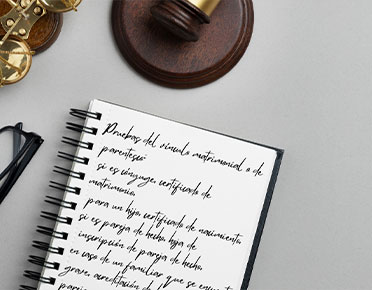 Pruebas del vínculo matrimonial o de
parentesco:
si es cónyuge, certificado de
matrimonio.
para un hijo, certificado de nacimiento.
si es pareja de hecho, hoja de
inscripción de pareja de hecho.
en caso de un familiar que se encuent
grave, acreditación de